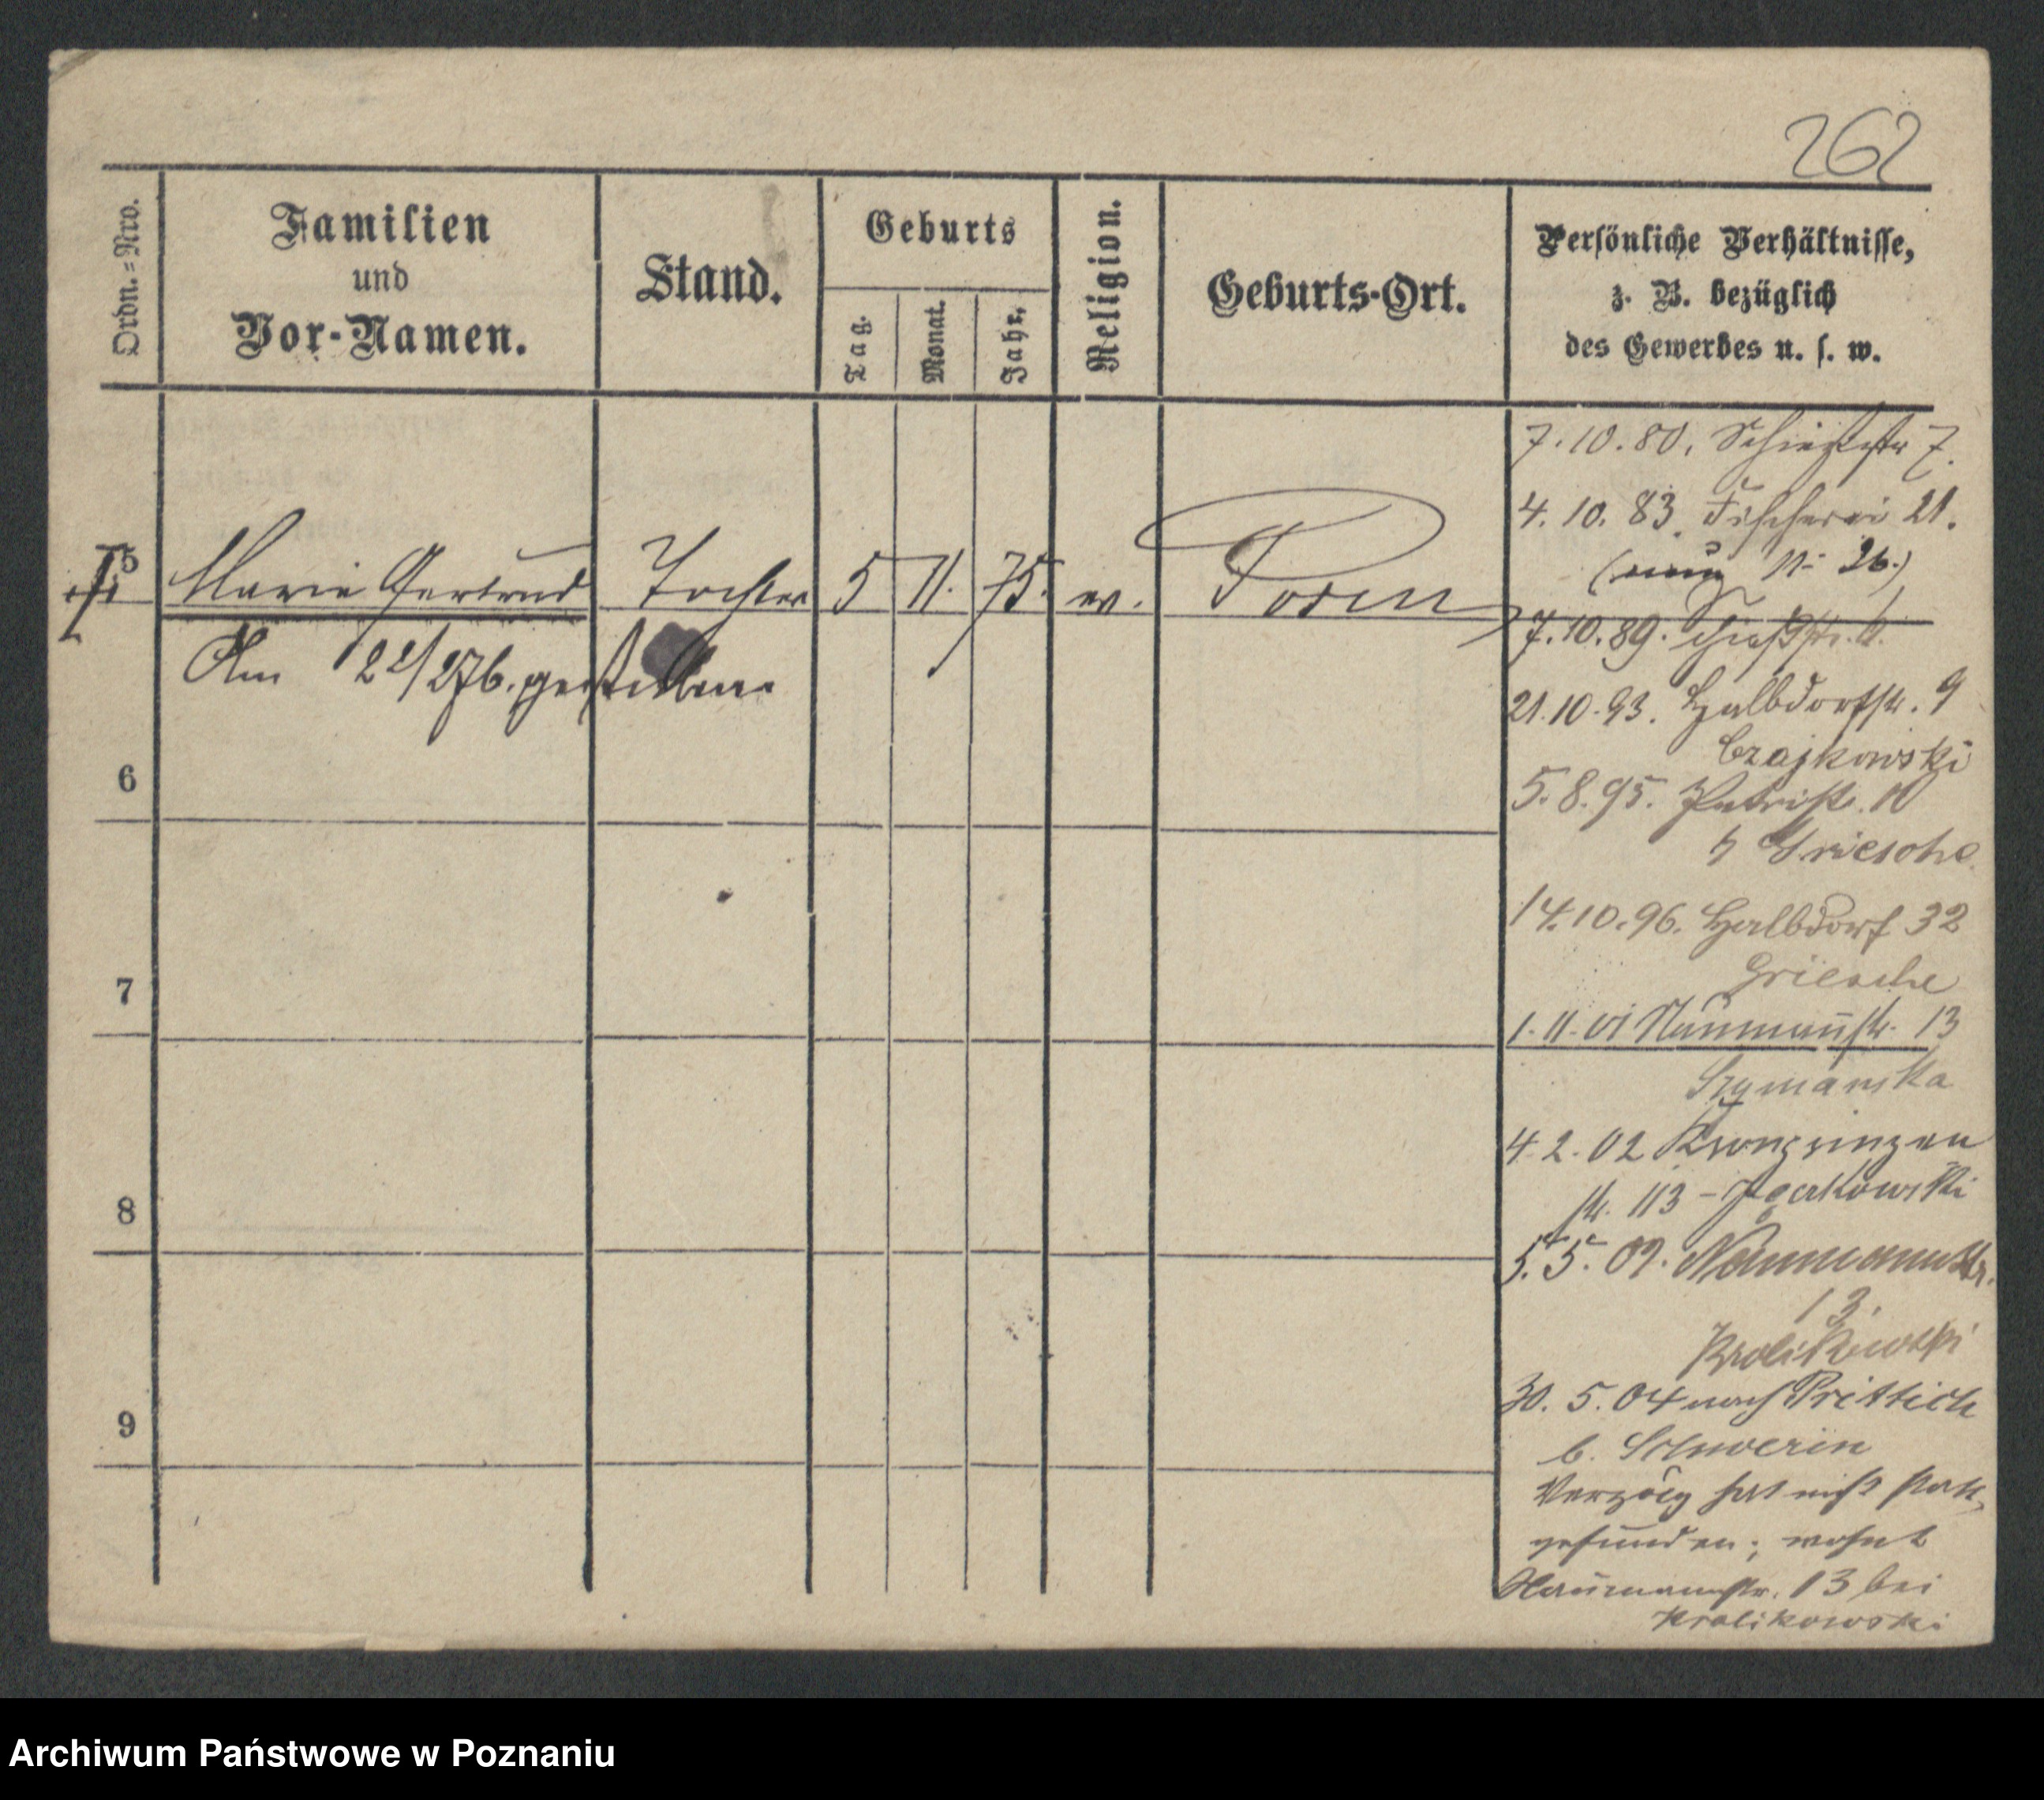 262
Ordn.=Nro.
Familien
und
Vor-Namen.
Stand.
Geburts
Tag.
Monat.
Jahr.
Religion.
Geburts-Ort.
Persönliche Verhältnisse,
z. B. bezüglich
des Gewerbes u. s. w.
5
Marie Gertrud Tochter 5 11. 75. ev. Posen
Am 22/2 76. gestorben.
6
7
8
9
7.10.80. Schießstr 7.
4.10.83. Fischerei 21.
26.)
7.10.89. Schießstr.
21.10.93. Halbdorfstr. 9
Czajkowski
5.8.95. Petristr. 10
Griesche
14.10.96. Halbdorf 32
Griesche
1.11.01 Naumannstr. 13
Szymanska
4.2.02 Kronprinzen
str. 113 -
5.5.02. Naumannstr.
13.
Krolikowski
30.5.04 nach Prittich
b. Schwerin
Verzug hat nicht statt
gefunden; wohnt
Naumannstr. 13 bei
Krolikowski
Archiwum Państwowe w Poznaniu